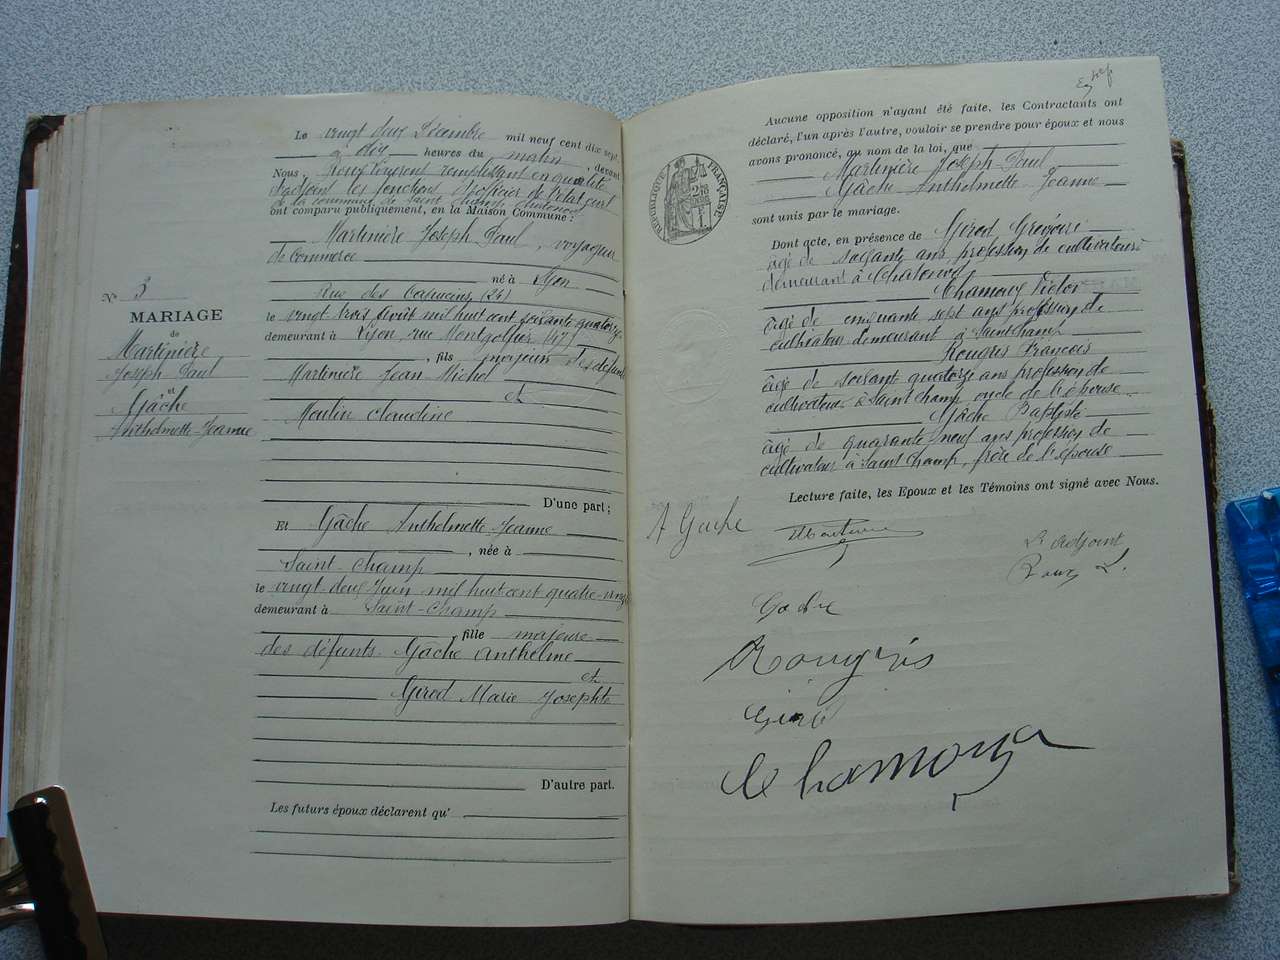 N° 3
MARIAGE
de
Martinière
Joseph Paul
et
Gâche
Anthelmette-Jeanne
Le vingt deux Décembre mil neuf cent dix sept,
à dix heures du matin, devant
Nous, Roux Vincent remplissant en qualité
d'adjoint les fonctions d'officier de l'état civil
de la commune de Saint Champ Chatonod
ont comparu publiquement, en la Maison Commune :
Martinière Joseph Paul, voyageur
de commerce
né à Lyon
Rue des Capucins (24)
le vingt trois août mil huit cent soixante quatorze
demeurant à Lyon, rue Montgolfier (47)
, fils majeur des défunts
Martinière Jean Michel
et
Moulin Claudine
D'une part ;
Et Gâche Anthelmette-Jeanne
, née à
Saint-Champ
le vingt-deux Juin mil huit cent quatre-vingt
demeurant à Saint-Champ
, fille majeure
des défunts Gâche Anthelme
et
Girod Marie Josephte
D'autre part.
Les futurs époux déclarent qu'
Aucune opposition n'ayant été faite, les Contractants ont
déclaré, l'un après l'autre, vouloir se prendre pour époux et nous
avons prononcé, au nom de la loi, que
Martinière Joseph Paul
Gâche Anthelmette-Jeanne
sont unis par le mariage.
RÉPUBLIQUE FRANÇAISE
Dont acte, en présence de Girod Grégoire
âgé de soixante ans profession de cultivateur
demeurant à Chatonod
Chamouy Victor
âgé de cinquante sept ans profession de
cultivateur demeurant à Saint Champ
Rougris François
âgé de soixante quatorze ans profession de
cultivateur à Saint Champ oncle de l'épouse
Gâche Baptiste
âgé de quarante-neuf ans profession de
cultivateur à Saint Champ, frère de l'épouse
Lecture faite, les Epoux et les Témoins ont signé avec Nous.
A Gache
Martiniere
L'adjoint
Roux V.
Gache
Rougris
Girod
Chamouy